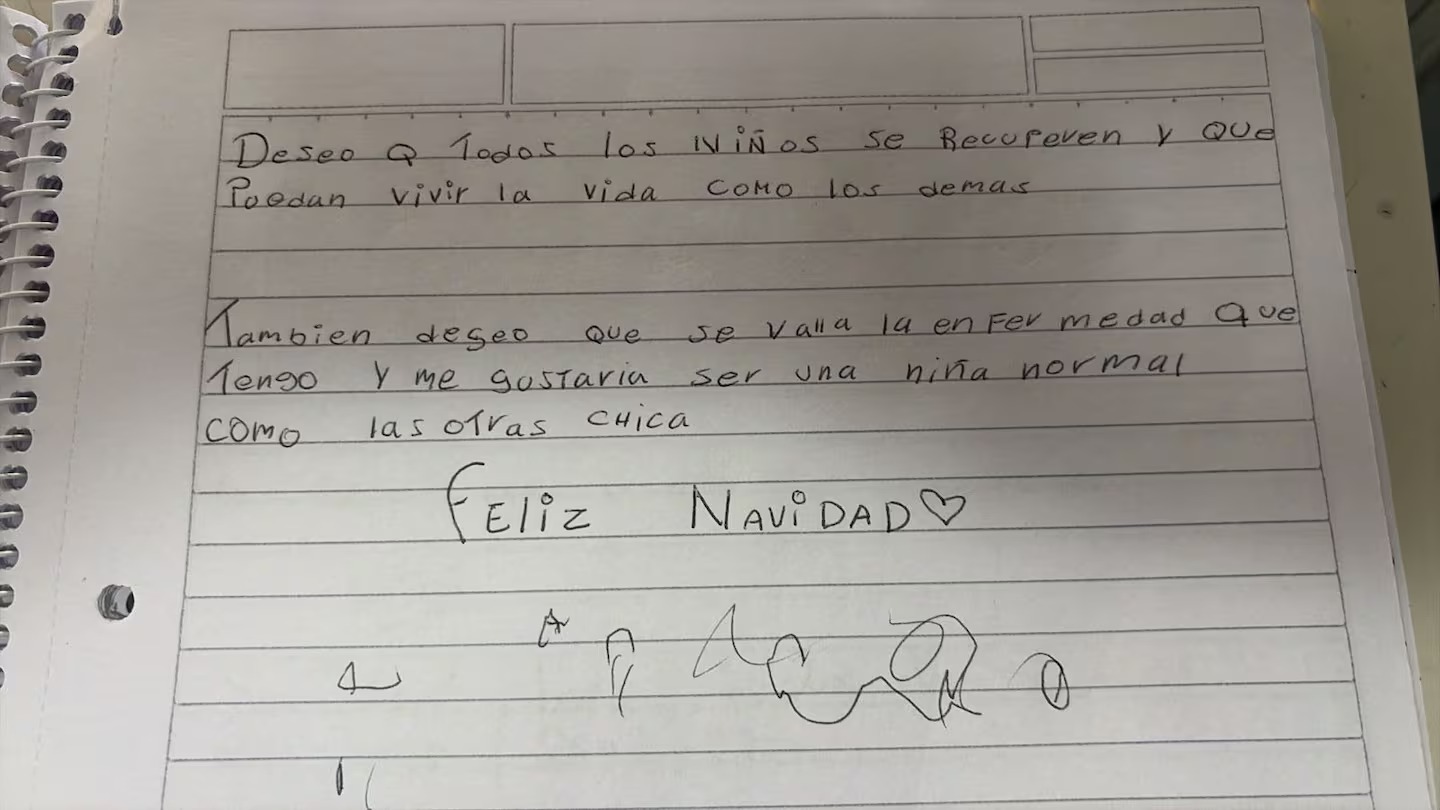 Deseo Q Todos los Niños se Recuperen y que
Puedan vivir la vida como los demas
Tambien deseo que se valla la enfermedad que
Tengo y me gustaria ser una niña normal
como las otras chica
Feliz Navidad♡